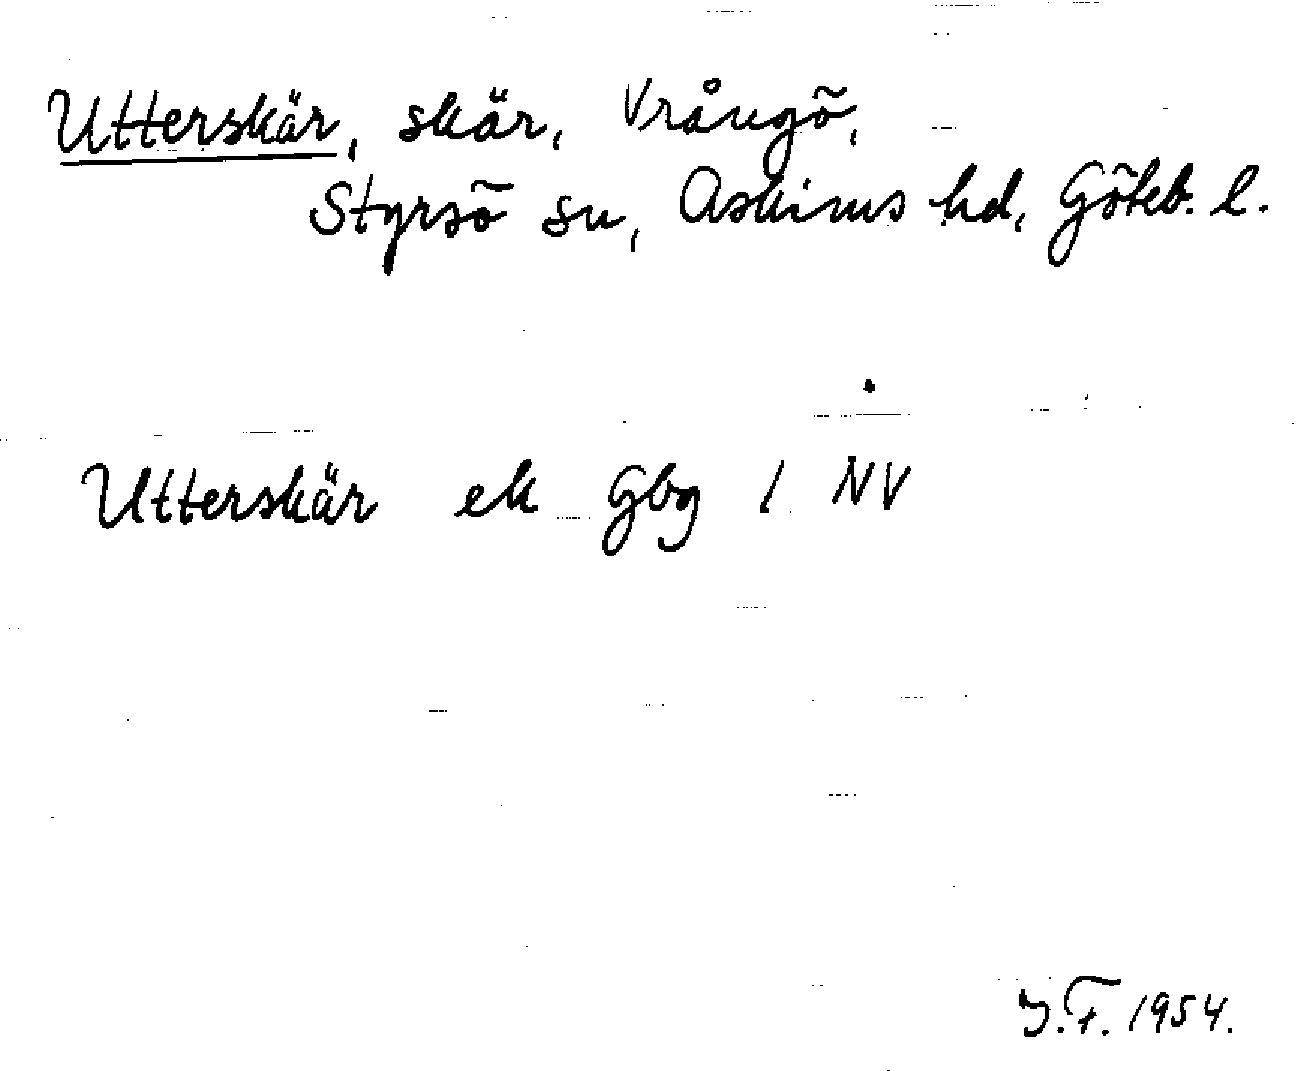 Utterskär, skär, Vrångö,
Styrsö sn, Askims hd, Göteb. l.
Utterskär ek Gbg 1 NV
J.F. 1954.